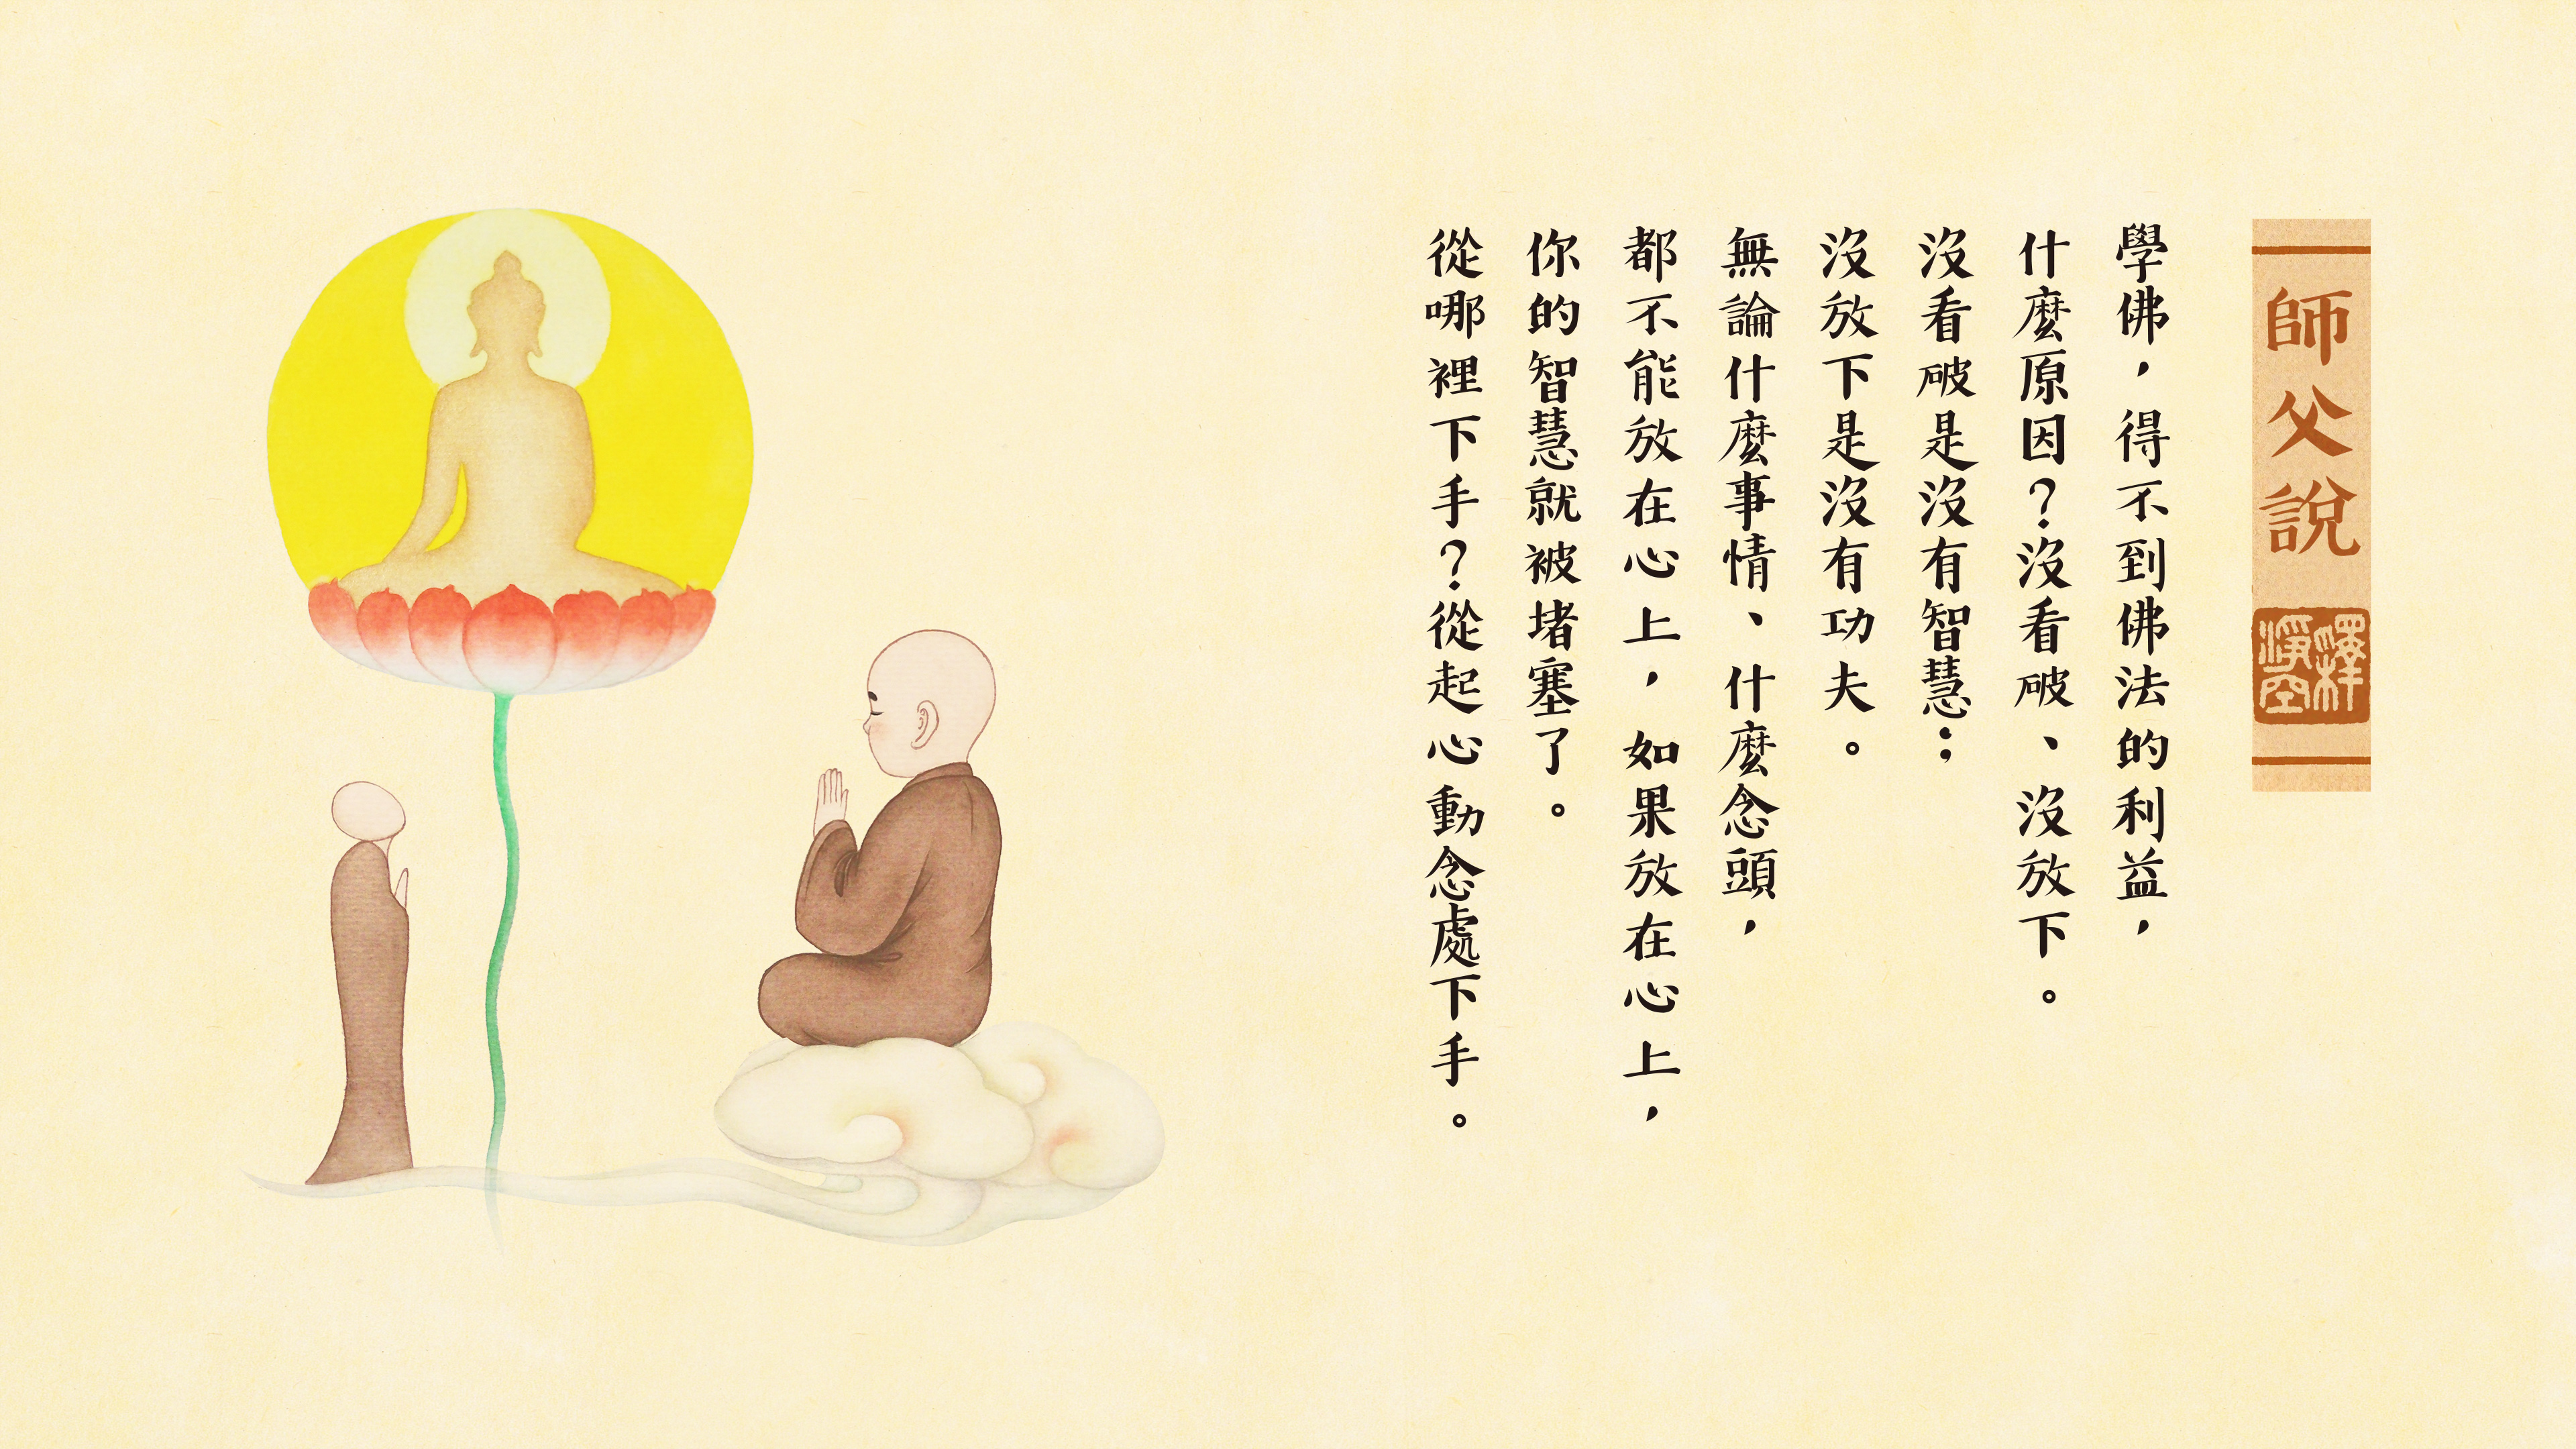 師父說
釋淨空
學佛，得不到佛法的利益，
什麼原因？沒看破、沒放下。
沒看破是沒有智慧；
沒放下是沒有功夫。
無論什麼事情、什麼念頭，
都不能放在心上，如果放在心上，
你的智慧就被堵塞了。
從哪裡下手？從起心動念處下手。